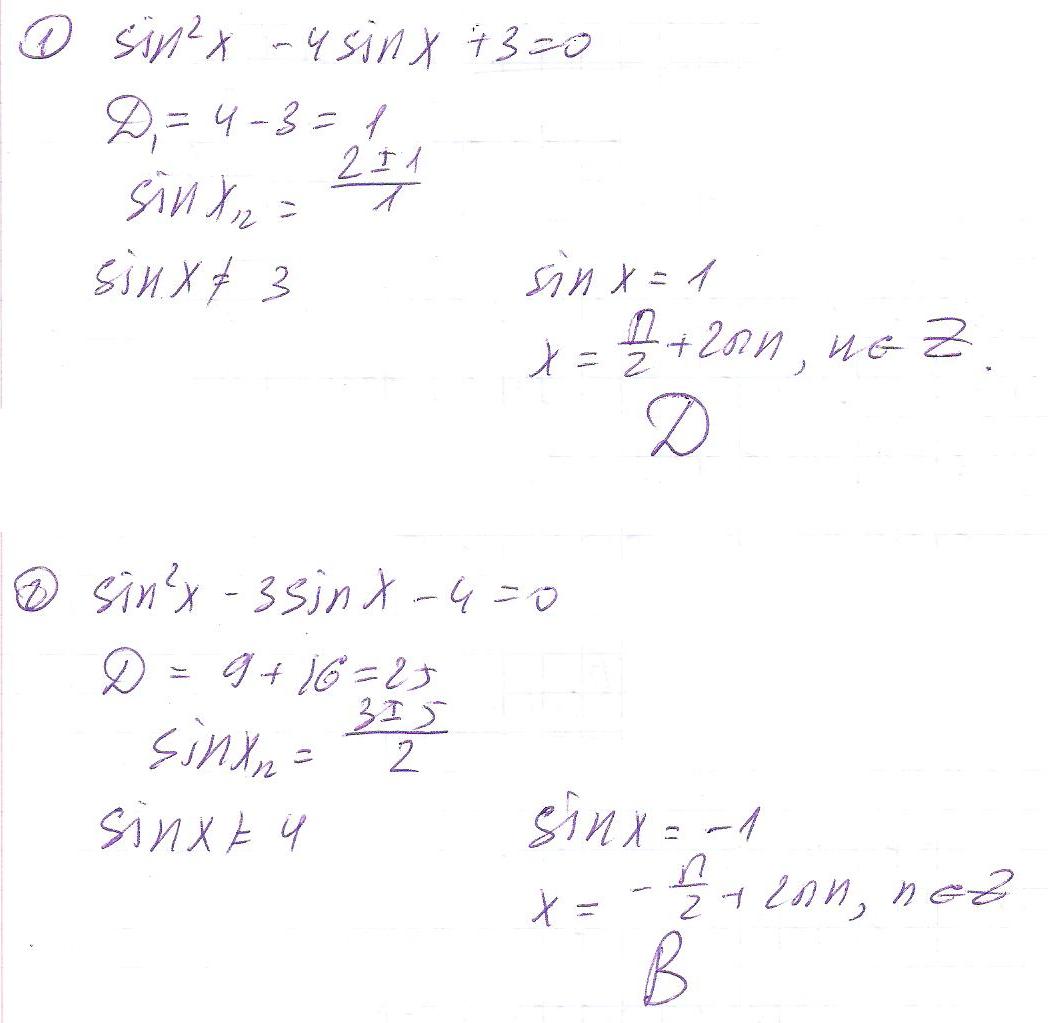 ① sin²x - 4sinx + 3 = 0
D₁ = 4 - 3 = 1
sinx₁₂ = (2 ± 1)/1
sinx ≠ 3 sinx = 1
x = π/2 + 2πn, n ∈ Z.
D
② sin²x - 3sinx - 4 = 0
D = 9 + 16 = 25
sinx₁₂ = (3 ± 5)/2
sinx ≠ 4 sinx = -1
x = -π/2 + 2πn, n ∈ Z
B